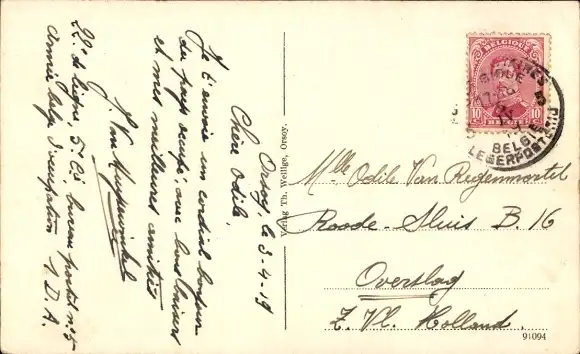 Orsoy, le 3-4-19
Chère Odile,
Je t'envoie un cordial bonjour
du pays occupé, avec bons baisers
et mes meilleures amitiés
J. Van
2e R. de ligne 5e Cie, bureau postal n:5
armée belge d'occupation 1. D. A.
Verlag Th. Wellige, Orsoy.
BELGIQUE
10 10
BELGIË
BELGIQUE
BELGI
LEGERPOSTERIJ
Mlle Odile Van Regenmortel
Roode-Sluis B. 16
Overslag
Z. Vl. Holland.
91094